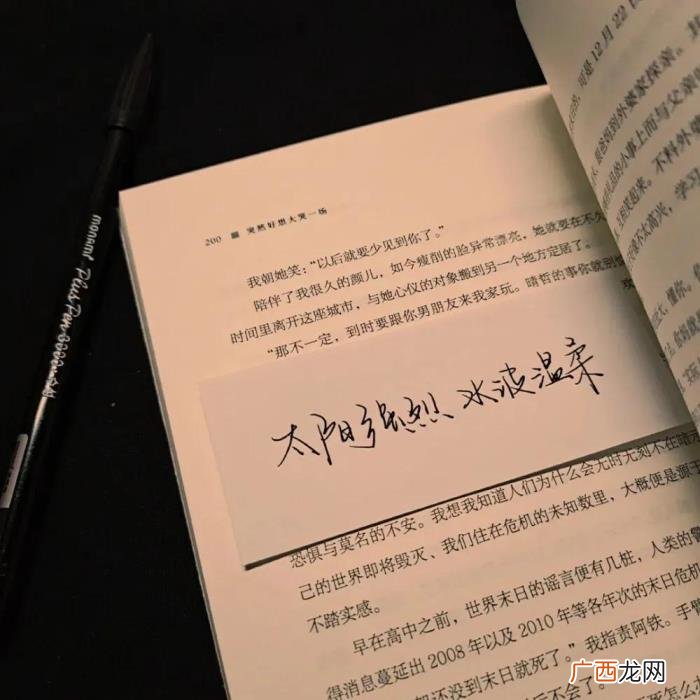 monami Plus Pen 3000
200 突然好想大哭一场
我朝她笑：“以后就要少见到你了。”
陪伴了我很久的颜儿，如今瘦削的脸异常漂亮，她就要在不久
时间里离开这座城市，与她心仪的对象搬到另一个地方定居了。
“那不一定，到时要跟你男朋友来我家玩。晴哲的事你就别
太阳强烈 水波温柔
的人们为什么会无时无刻不在暗
恐惧与莫名的不安。我想我知道
己的世界即将毁灭、我们住在危机的未知数里，大概便是源于
不踏实感。
早在高中之前，世界末日的谣言便有几桩，人类的
得消息蔓延出2008年以及2010年等各年次的末日危机
还没到末日就死了。”我指责阿铁。手臂
可是12月22日
爸妈到外婆家探亲。
的小事上而与父亲
和笑起来。不料外婆
不太高兴，学习
懂你。
广西龙网